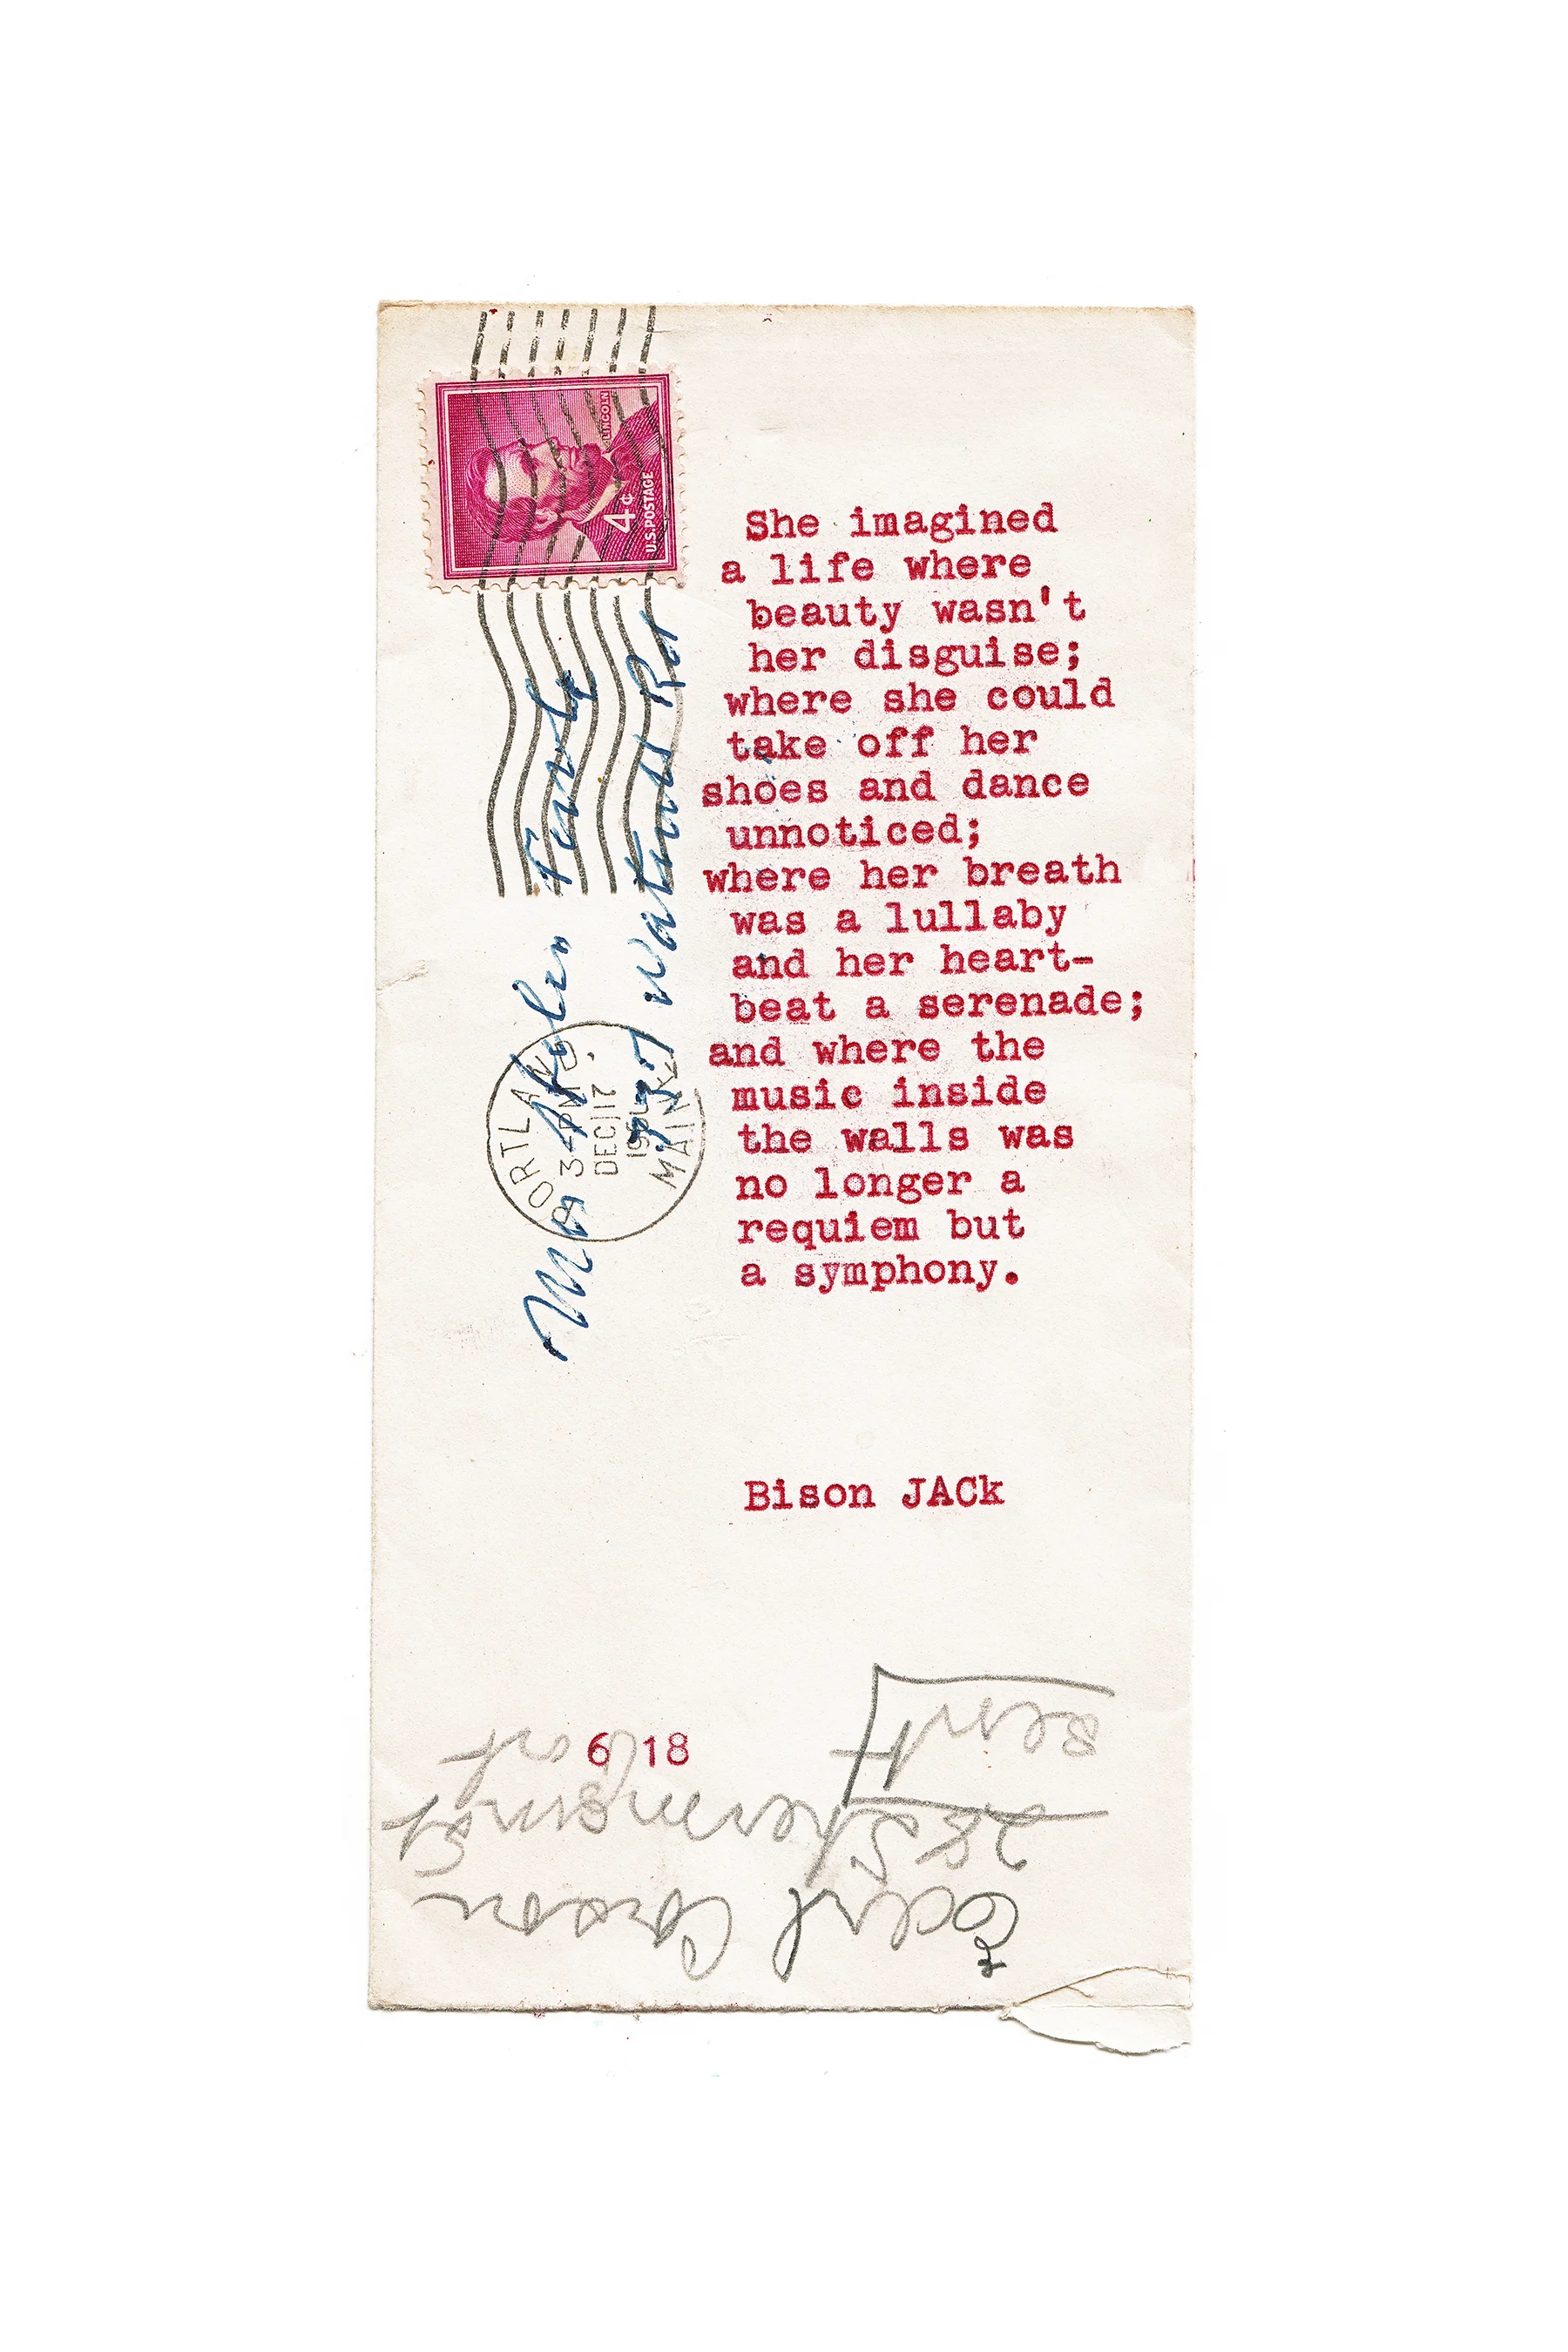 LINCOLN
4¢
U.S. POSTAGE
PORTLAND
3 - PM
DEC 17
MAINE
Mrs Helen
She imagined
a life where
beauty wasn't
her disguise;
where she could
take off her
shoes and dance
unnoticed;
where her breath
was a lullaby
and her heart-
beat a serenade;
and where the
music inside
the walls was
no longer a
requiem but
a symphony.
Bison JACk
6 18
Sent
28 Sherman St